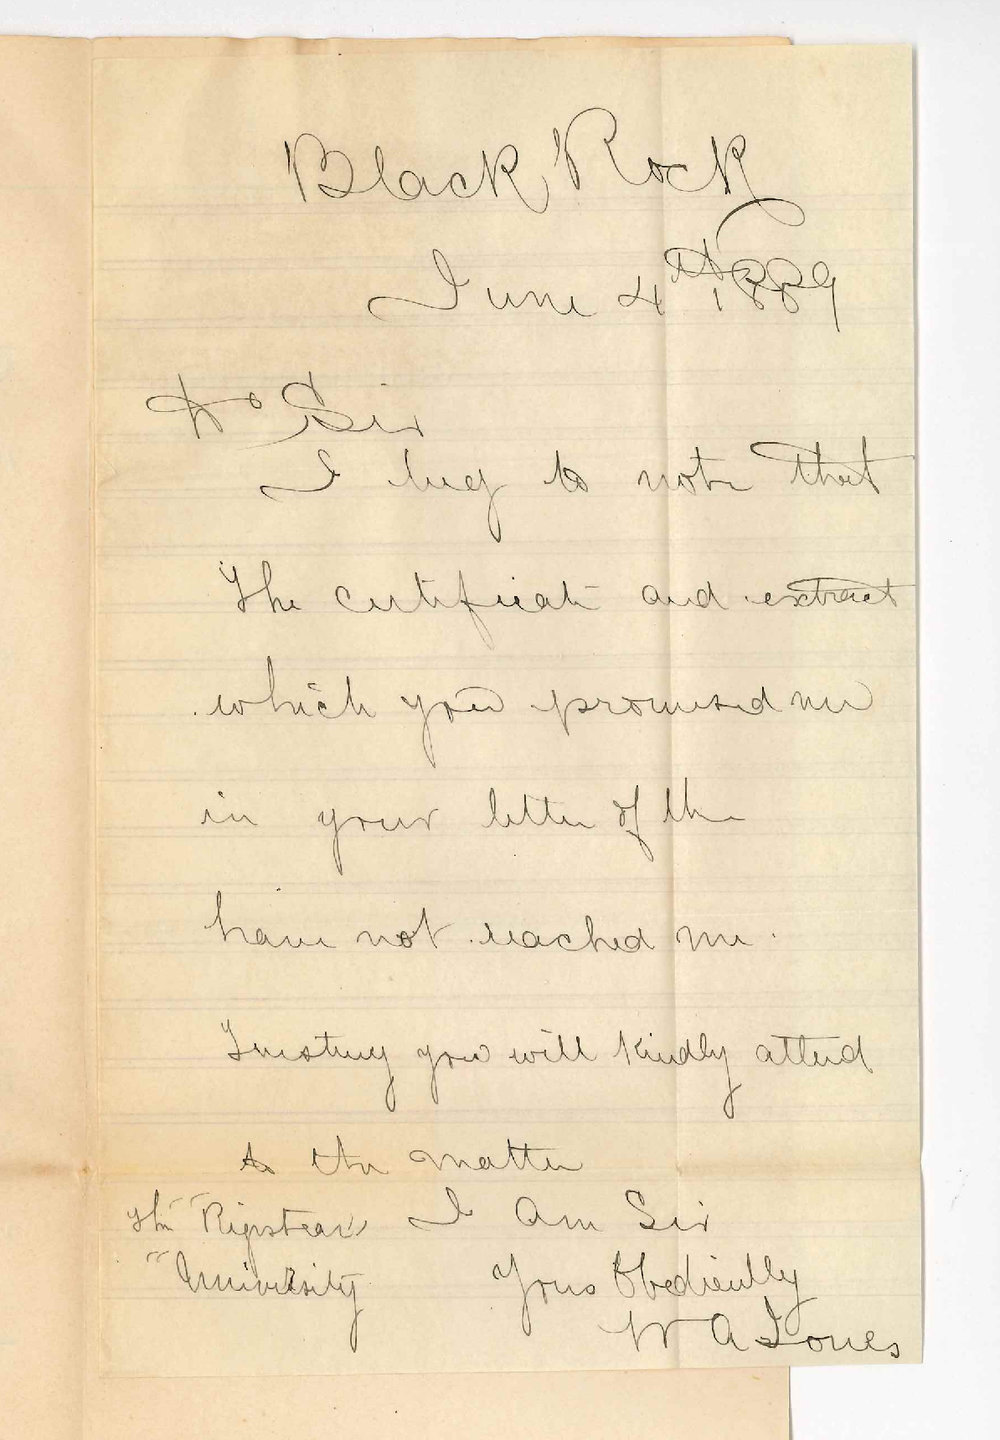 Black Rock
June 4th 1889
Dr Sir
I beg to note that
the certificate and extract
which you promised me
in your letter of the
have not reached me.
Trusting you will kindly attend
to the matter
I am Sir
Yours Obediently
W A Jones
The Registrar
" University